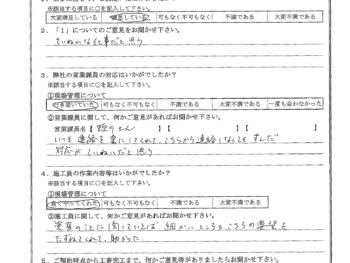 ※該当する項目に○を記入して下さい。
大変満足している 満足している 可もなく不可もなく 不満である 大変不満である
2．「1」についてのご意見をお聞かせ下さい。
ていねいな仕事だと思う
3．弊社の営業議員の対応はいかがでしたか？
※該当する項目に○を記入して下さい。
①現場管理について
行き届いていた 可もなく不可もなく 不満である 大変不満である 一度も会わなかった
②営業議員に関して、何かご意見があればお聞かせ下さい。
営業議員名【 さん 】【 】【 】
いつも連絡を密にしてくれて、こちらから連絡しなくてもすんだ
対応がていねいだと思う
4．施工員の作業内容等はいかがでしたか？
※該当する項目に○を記入して下さい。
①現場管理について
良くやってくれた 可もなく不可もなく 不満である 大変不満である
②施工員に関して、何かご意見があればお聞かせ下さい。
塗装のことに関していえば 細かいところもこちらの要望を
たずねてくれて、助かった
5．ご契約時点から工事完工まで、何かご意見等がありましたらお聞かせ下さい。